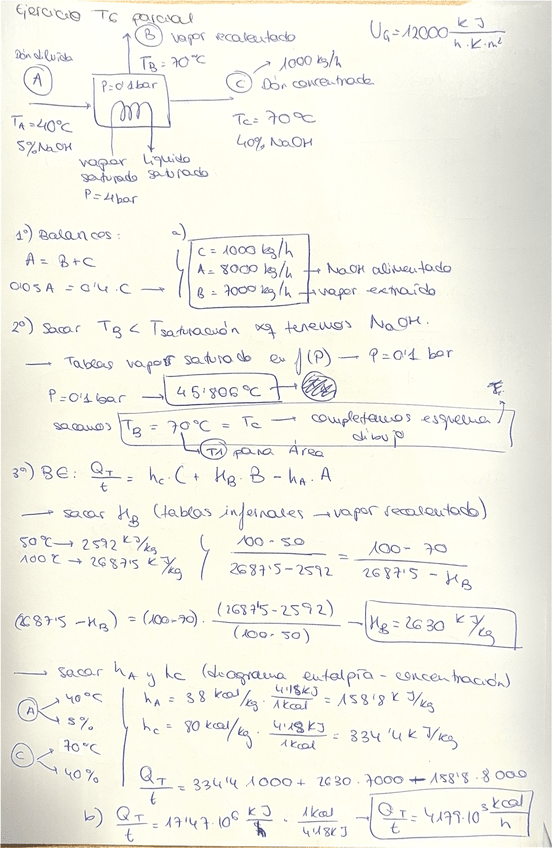 Ejercicio TC parcial
B vapor recalentado
U_G = 12000 kJ/h·K·m²
Dón diluida
A
T_B = 70ºC
P = 0'1 bar
C → 1000 kg/h
Dón concentrada
T_A = 40ºC
5% NaOH
T_C = 70ºC
40% NaOH
vapor saturado P = 4 bar
Líquido saturado
1º) Balances: a)
A = B + C
0'05 A = 0'4 · C →
C = 1000 kg/h
A = 8000 kg/h → NaOH alimentado
B = 7000 kg/h → vapor extraído
2º) Sacar T_B < T saturación xq tenemos NaOH.
→ Tablas vapor saturado en f(P) → P = 0'1 bar
P = 0'1 bar → 45'806ºC →
sacamos T_B = 70ºC = T_C → completamos esquema dibujo
T1 para Área
3º) BE: Q_T/t = h_C · C + H_B · B − h_A · A
→ sacar H_B (tablas infernales → vapor recalentado)
50ºC → 2592 kJ/kg
100ºC → 2687'5 kJ/kg
(100 − 50)/(2687'5 − 2592) = (100 − 70)/(2687'5 − H_B)
(2687'5 − H_B) = (100 − 70) · (2687'5 − 2592)/(100 − 50) → H_B = 2630 kJ/kg
→ sacar h_A y h_C (diagrama entalpía - concentración)
A → 40ºC → 5%
h_A = 38 kcal/kg · 4'18 kJ/1 kcal = 158'8 kJ/kg
C → 70ºC → 40%
h_C = 80 kcal/kg · 4'18 kJ/1 kcal = 334'4 kJ/kg
Q_T/t = 334'4 · 1000 + 2630 · 7000 − 158'8 · 8000
b) Q_T/t = 17'47 · 10⁶ kJ/h · 1 kcal/4'18 kJ → Q_T/t = 4179 · 10³ kcal/h